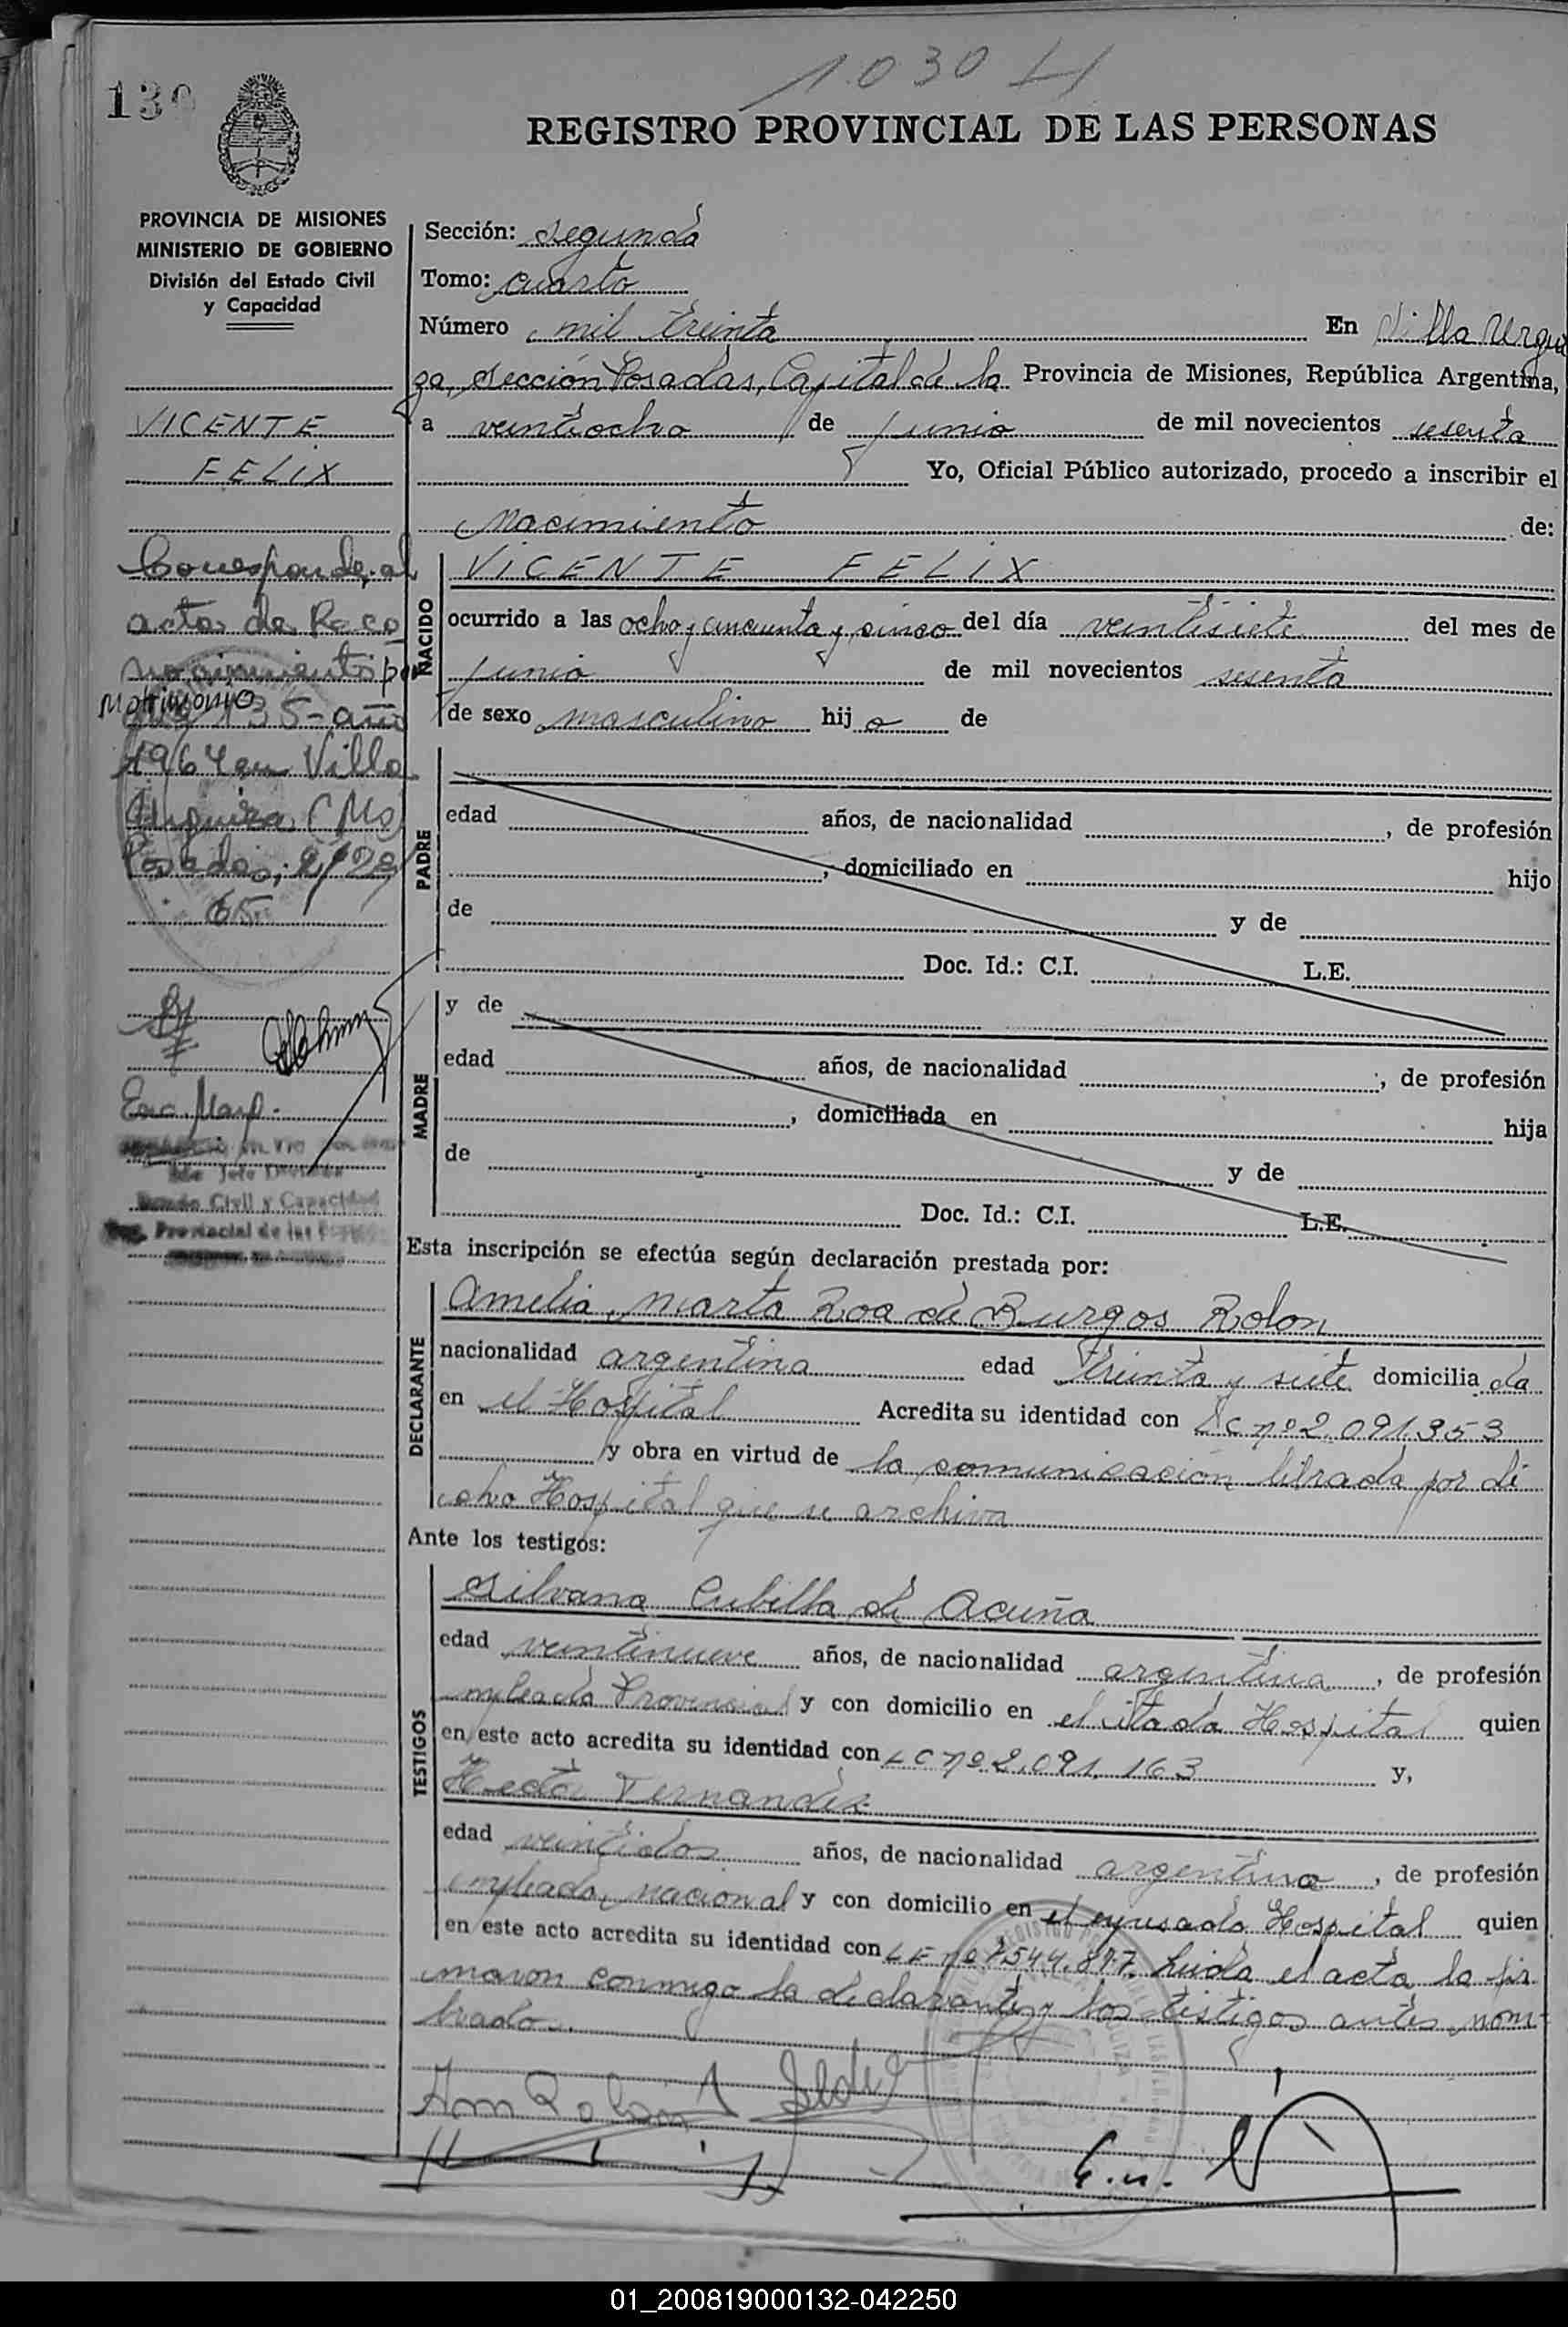 1.030
130
REGISTRO PROVINCIAL DE LAS PERSONAS
PROVINCIA DE MISIONES
MINISTERIO DE GOBIERNO
División del Estado Civil
y Capacidad
Sección: segunda
Tomo: cuarto
Número mil treinta En Villa Urqui
za, sección Posadas, Capital de la Provincia de Misiones, República Argentina,
a veintiocho de junio de mil novecientos sesenta
Yo, Oficial Público autorizado, procedo a inscribir el
Nacimiento de:
VICENTE
FELIX
Corresponde al
acta de Reco
nocimiento por
Matrimonio
135 - año
1964 en Villa
Urquiza (Ms)
Posadas,
65
Enc. Marg.
Jefe División
Civil y Capacidad
Reg. Provincial de las
NACIDO
VICENTE FELIX
ocurrido a las ocho y cincuenta y cinco del día veintisiete del mes de
junio de mil novecientos sesenta
de sexo masculino hijo de
PADRE
edad años, de nacionalidad , de profesión
, domiciliado en hijo
de y de
Doc. Id.: C.I. L.E.
MADRE
y de
edad años, de nacionalidad , de profesión
, domiciliada en hija
de y de
Doc. Id.: C.I. L.E.
Esta inscripción se efectúa según declaración prestada por:
DECLARANTE
Amelia Marta Roa de Burgos Rolon
nacionalidad argentina edad treinta y siete domiciliada
en el Hospital Acredita su identidad con LC nº 2.091.353
y obra en virtud de la comunicación librada por di
cho Hospital que se archiva
Ante los testigos:
TESTIGOS
Silvana Cubilla de Acuña
edad veintinueve años, de nacionalidad argentina, de profesión
empleada Provincial y con domicilio en el citado Hospital quien
en este acto acredita su identidad con LC nº 2.091.163 y,
Hector Fernandez
edad veintidos años, de nacionalidad argentina, de profesión
empleado nacional y con domicilio en el expresado Hospital quien
en este acto acredita su identidad con LE nº 7544.877. Leida el acta la fir
maron conmigo la declarante y los testigos antes nom-
brados.
01_200819000132-042250